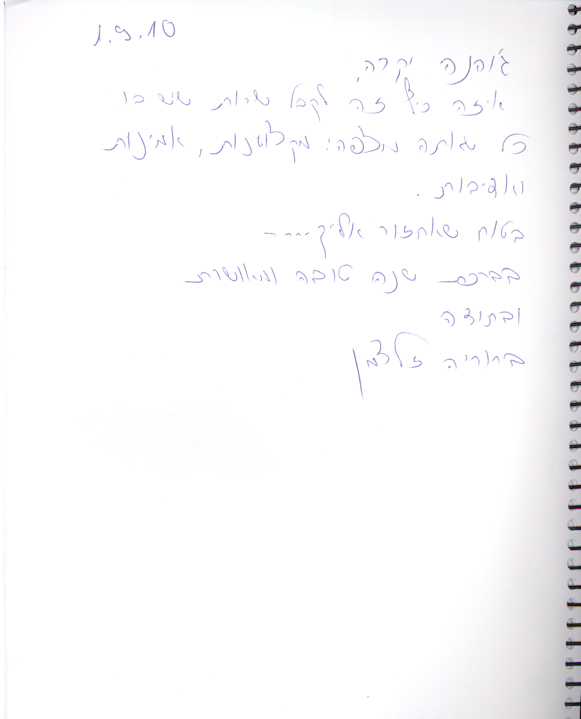 1.9.10
ג'והנה יקרה,
איזה כיף זה לקבל שרות שיש בו
כל מה שאתה מצפה: מקצוענות, אמינות
ואדיבות.
בטוח שאחזור אליך----
בברכת שנה טובה ומאושרת
ובתודה
ברוריה זלצמן